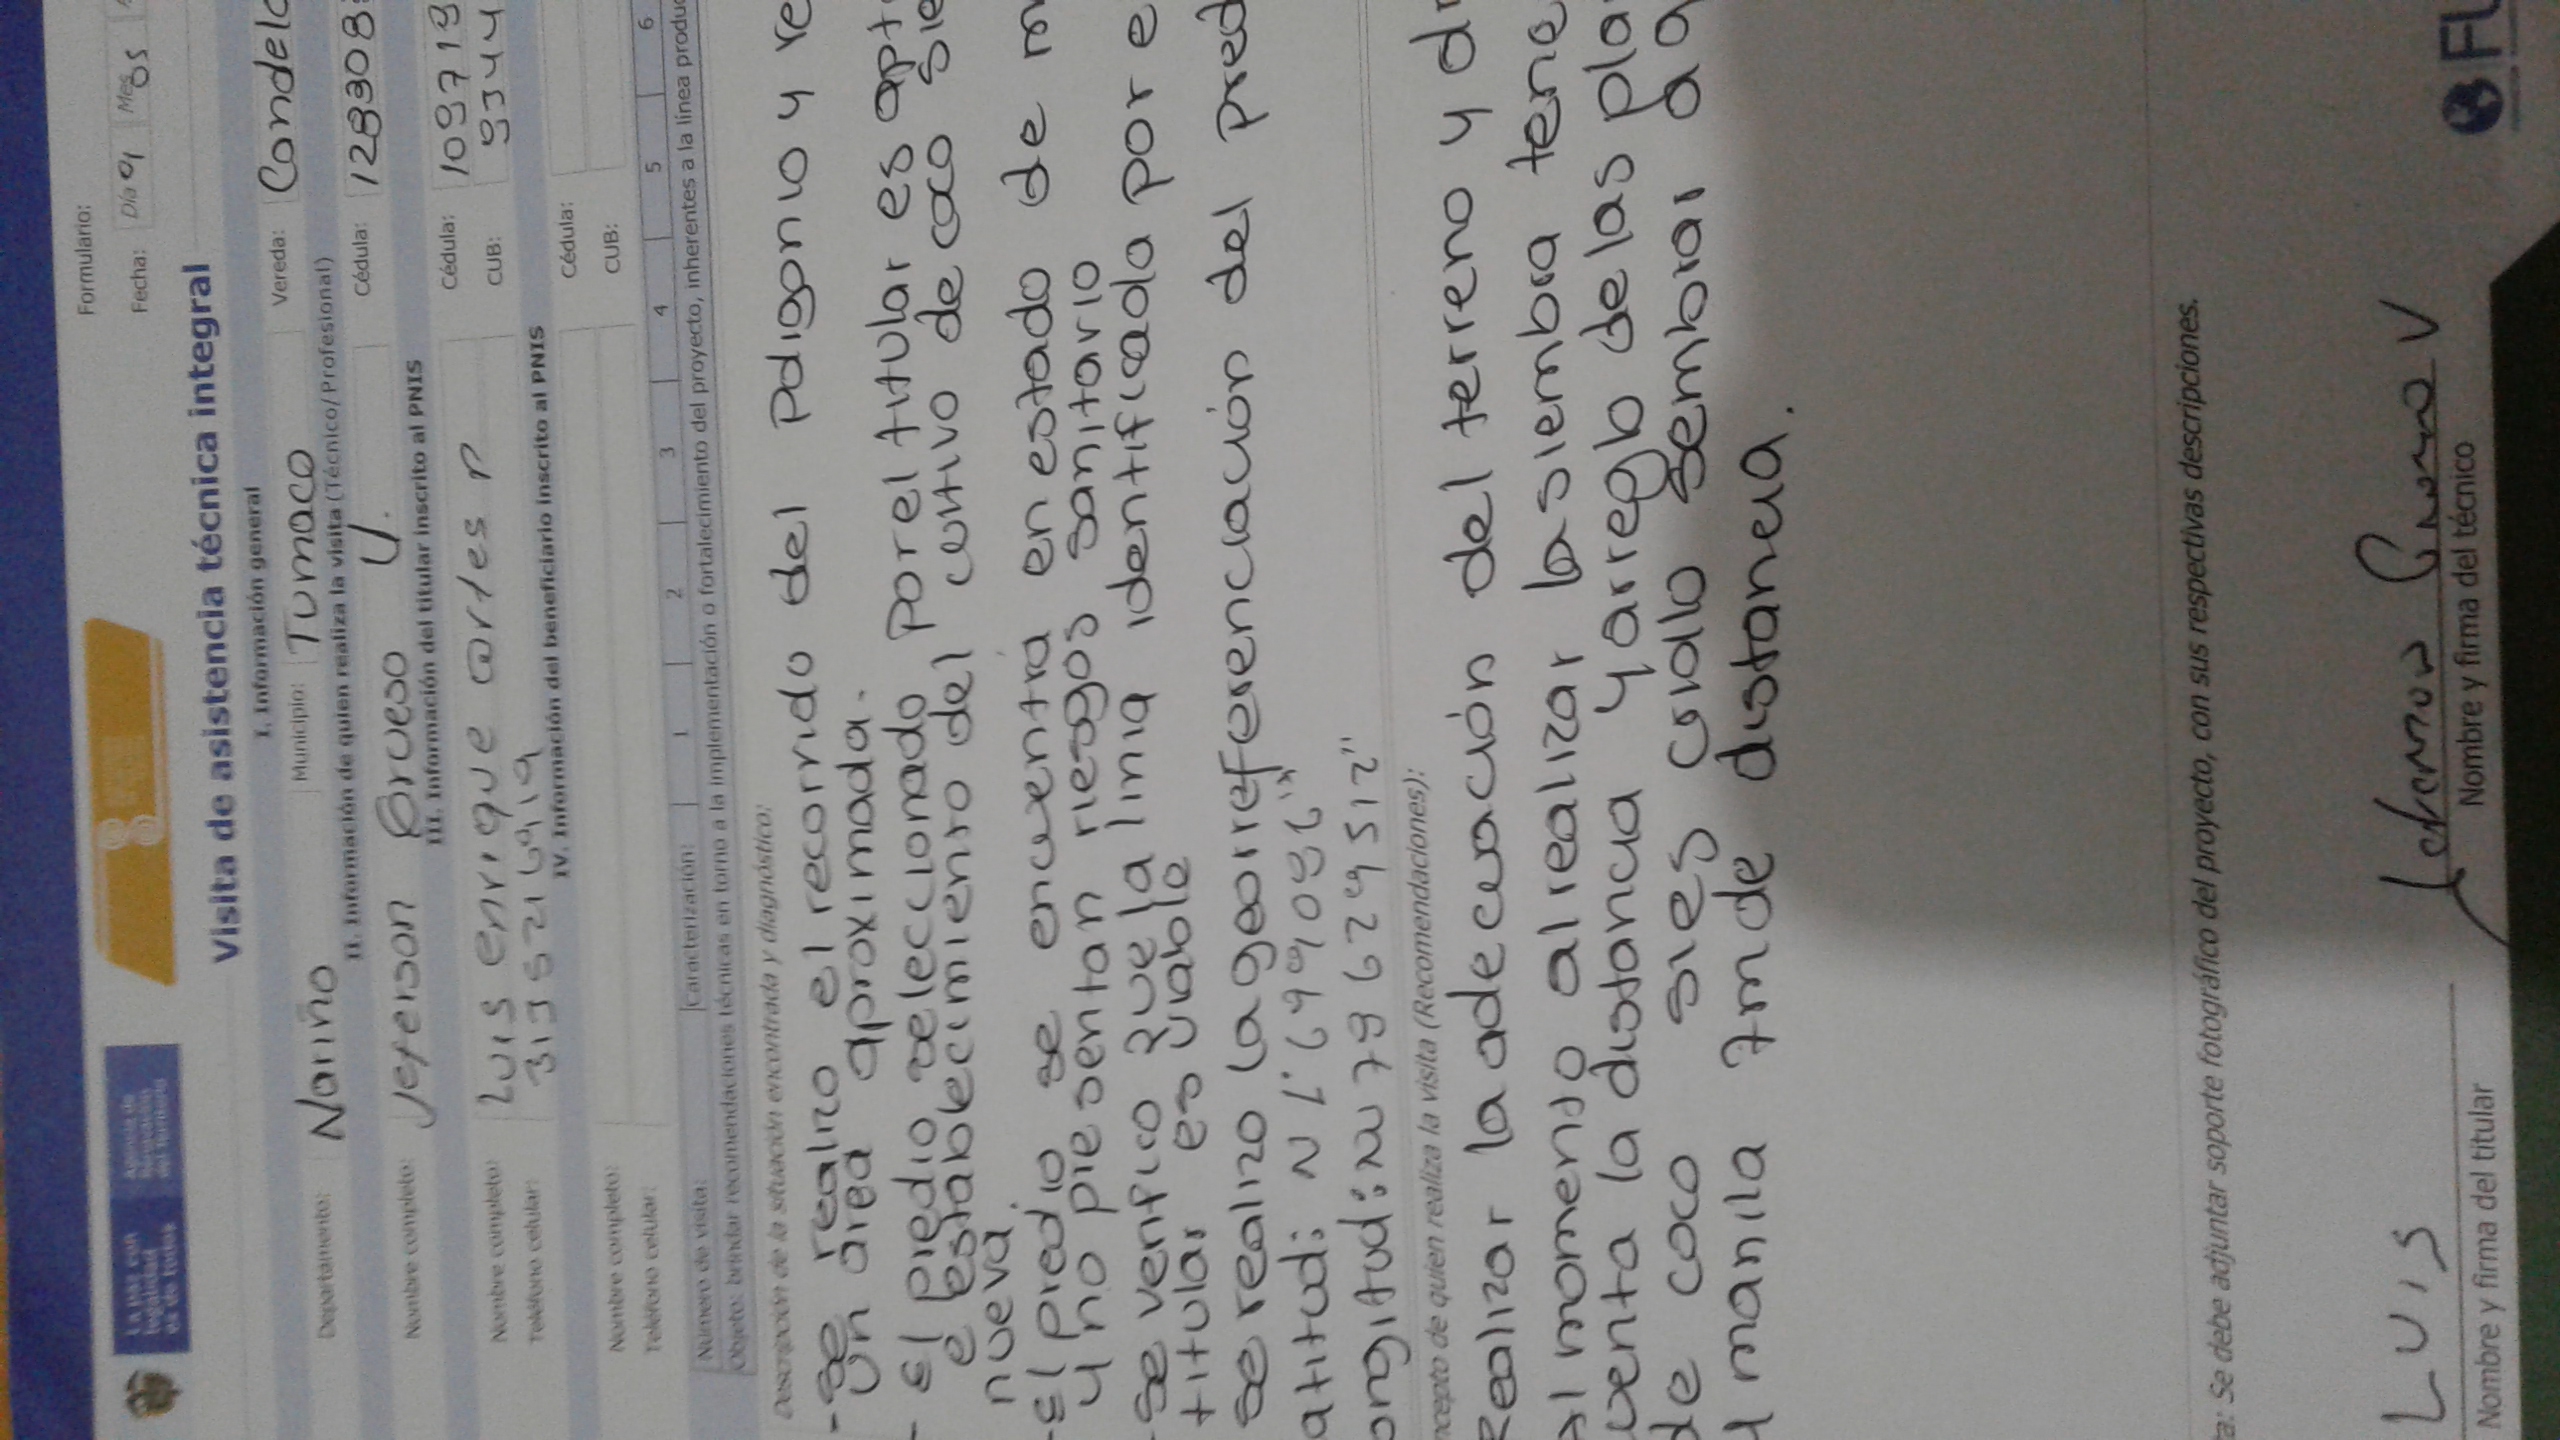 La paz con legalidad es de todos
Agencia de Renovación del Territorio
Formulario:
Fecha: Día 09 Mes 05
Visita de asistencia técnica integral
I. Información general
Departamento: Nariño Municipio: Tumaco Vereda: Candela
II. Información de quien realiza la visita (Técnico/Profesional)
Nombre completo: Jeferson V. Cédula: 1283908
III. Información del titular inscrito al PNIS
Nombre completo: Luis enrique cortes P Cédula: 109719
Teléfono celular: CUB: 9344
IV. Información del beneficiario inscrito al PNIS
Nombre completo: Cédula:
Teléfono celular: CUB:
Número de visita: Caracterización: 1 2 3 4 5 6
Objeto: brindar recomendaciones técnicas en torno a la implementación o fortalecimiento del proyecto, inherentes a la línea produc
Descripción de la situación encontrada y diagnóstico:
- se realizo el recorrido del poligonio y re
un área aproximada.
- El predio seleccionado por el titular es apt
e establecimiento del cultivo de coco sie
nueva
- El predio se encuentra en estado de
y no presentan riesgos sanitario
- se verifico que la linia identificado por e
titular es viable
se realizo la georreferenciación del pred
atitud: N
ongitud:
ncepto de quien realiza la visita (Recomendaciones):
Realizar la adecuación del terreno y
al momento al realizar la siembra tene
uenta la distancia y arreglo de las pla
de coco si es criollo sembrar a 9
y manila 7m de distancia.
ta: Se debe adjuntar soporte fotográfico del proyecto, con sus respectivas descripciones.
LUIS
Nombre y firma del titular Nombre y firma del técnico
FU